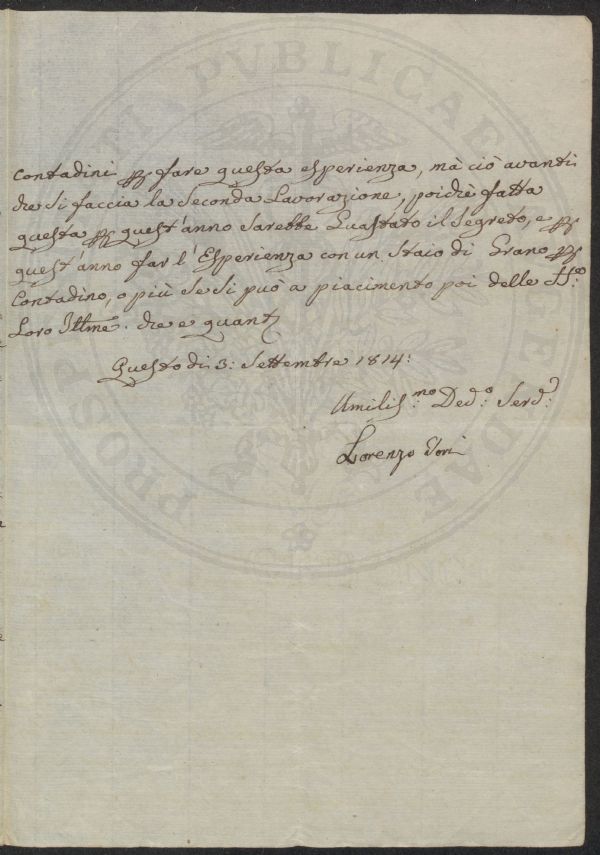 contadini p fare questa esperienza, mà ciò avanti
che si faccia la Seconda Lavorazione, poichè fatta
questa p quest'anno sarebbe Guastato il Segreto, e p
quest'anno far l'Esperienza con un Staio di Grano p
Contadino, o più se si può a piacimento poi delle
Loro Illme. che e quant
Questo di 3: Settembre 1814:
Umiliss:mo Ded:o Serv:
Lorenzo Tori
PROSPERITATI PVBLICAE AVGENDAE